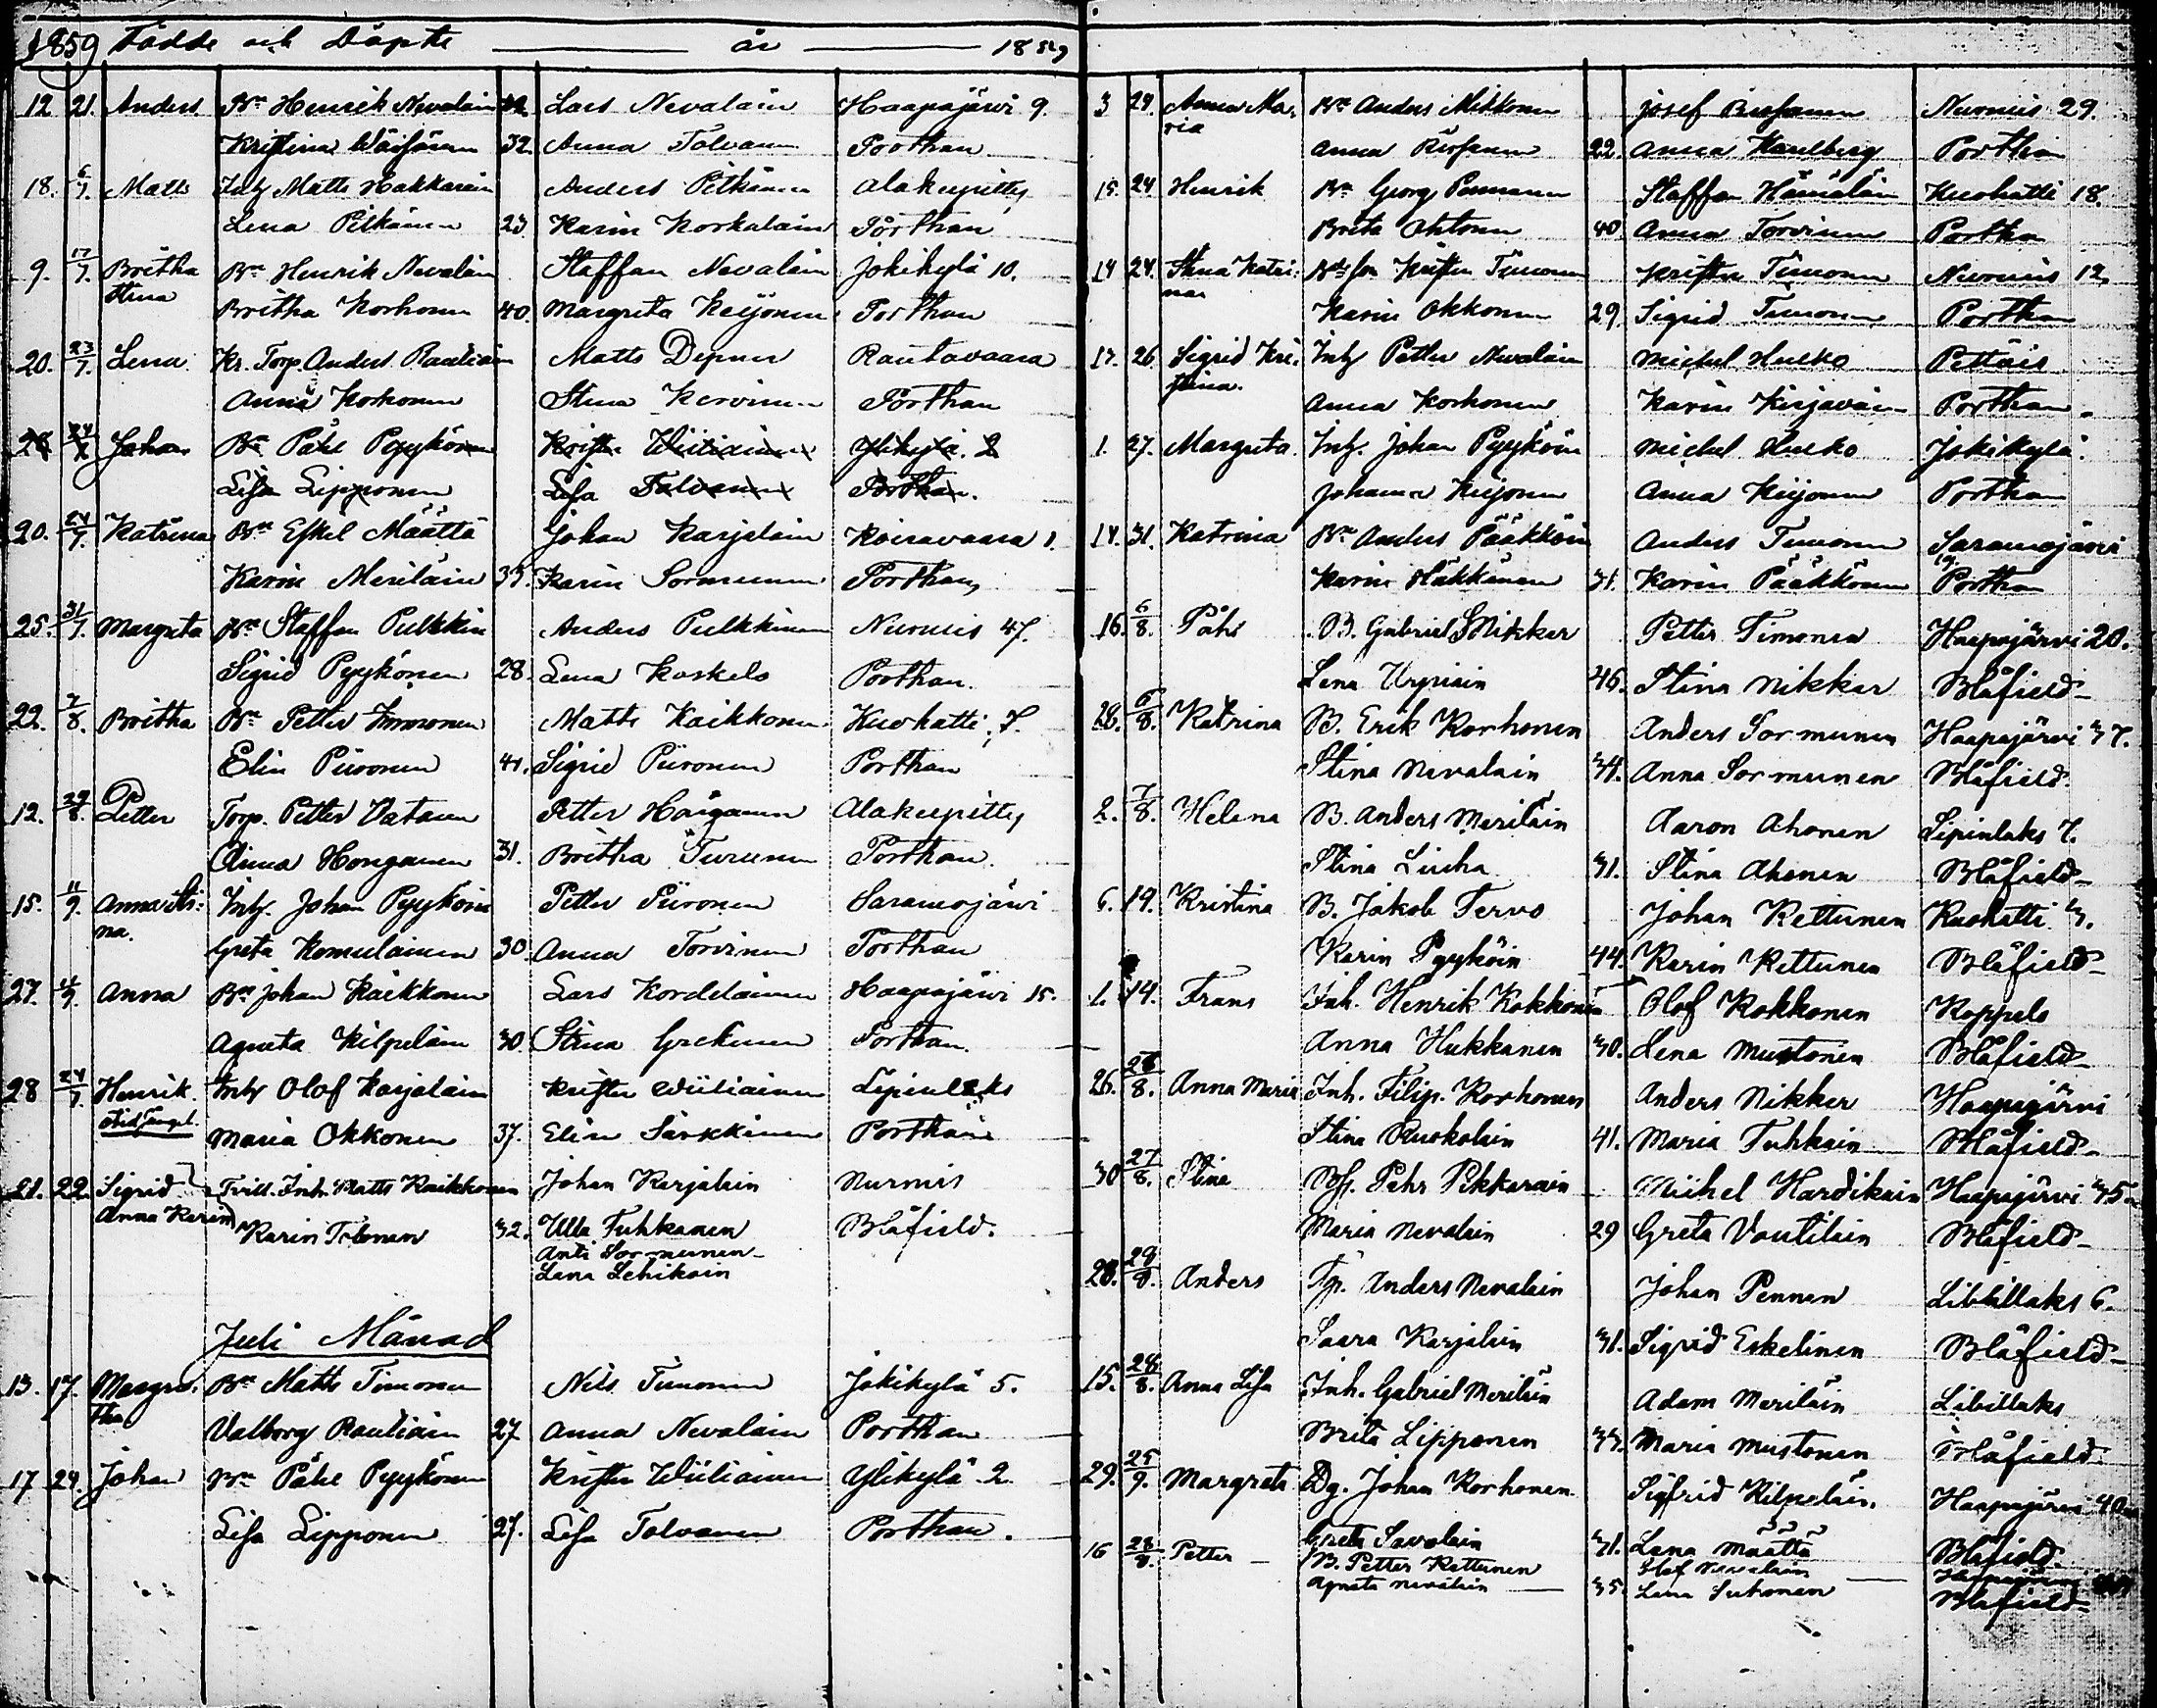 1859 Födde och Döpte år 1859
12 21. Anders Bn Henrik Nevalain 42 Lars Nevalain Haapajärvi 9.
Kristina Wäisänen 32. Anna Tolvanen Porthan
18. 6/7. Matts Inh Matts Hakkarain Anders Pitkänen Alakeyritty
Lena Pitkänen 23 Karin Korkalain Porthan
9. 17/7. Britha Stina Bn Henrik Nevalain Staffan Nevalain Jokikylä 10.
Britha Korhonen 40. Margreta Keijonen Porthan
20. 23/7. Lena Kr. Torp. Anders Rautiain Matts Depner Rautavaara
Anna Korhonen Stina Kervinen Porthan
28 24/7 Johan Bn Påhl Pyykönen Krister Wiiliainen Ylikylä. 2
Lisa Lipponen Lisa Tolvanen Porthan.
20. 24/7. Katrina Bn Eskel Määttä Johan Karjalain Koiravaara 1.
Karin Meriläin 33. Karin Sormunen Porthan
25. 31/7. Margreta Bn Staffan Pulkkin Anders Pulkkinen Nurmis 47.
Sigrid Pyykönen 28. Lena Koskelo Porthan.
22. 7/8. Britha Bn Petter Immonen Matts Kaikkonen Kuohatti. 7.
Elin Piironen 41. Sigrid Piironen Porthan
12. 29/8. Petter Torp. Petter Vatanen Petter Honganen Alakeyritty
Anna Honganen 31. Britha Turunen Porthan.
15. 11/9. Anna Stina. Inh. Johan Pyyköin Petter Piironen Saramojärvi
Greta Komulainen 30. Anna Torvinen Porthan
27. 4/9. Anna Bn Johan Kaikkonen Lars Kordelainen Haapajärvi 15.
Agneta Kilpeläin 30. Stina Gerkinen Porthan.
28 24/7. Henrik Inh Olof Karjalain Krister Wiiliainen Lipinlaks
Maria Okkonen 37. Elin Särkkinen Porthan
21. 22. Sigrid Tvill. Inh. Matts Kaikkonen Johan Karjalain Nurmis
Anna Karin Karin Tolonen 32. Ulla Tuhkanen Blåfield.
Anti Sormunen
Lena Lehikoin
Juli Månad
13. 17. Margretha Bn Matts Timonen Nils Timonen Jokikylä 5.
Valborg Rautiain 27 Anna Nevalain Porthan
17 24. Johan Bn Påhl Pyykönen Krister Wiiliainen Ylikylä 2
Lisa Lipponen 27. Lisa Tolvanen Porthan.
3 24. Anna Maria Bn Anders Mikkonen Josef Nurmis 29.
Anna 22. Anna Karlberg Porthan
15. 24 Henrik Bn Georg Staffan Hämäläin Kuohatti 18.
Brita Ahtonen 40. Anna Torvinen Porthan
14 24. Stina Katrina Krister Timonen Krister Timonen Nurmis 12
Karin Okkonen 29. Sigrid Timonen Porthan
17. 26 Sigrid Kristina. Inh Petter Nevalain Michel Husko Pettäis
Anna Korhonen Karin Kirjavain Porthan.
1. 27. Margreta Inh. Johan Pyyköin Michel Husko Jokikylä.
Johanna Keijonen Anna Keijonen Porthan
14. 31. Katrina Bn Anders Pääkköin Anders Timonen Saramojärvi
Karin Häkkänen 31. Karin Pääkkönen Porthan
16. 6/8. Påhl B. Gabriel Nikker Petter Timonen Haapajärvi 20.
Lena Urpiain 46. Stina Nikker Blåfield
28. 6/8. Katrina B. Erik Korhonen Anders Sormunen Haapajärvi 37.
Stina Nevalain 34. Anna Sormunen Blåfield.
2. 7/8. Helena B. Anders Meriläin Aaron Ahonen Lipinlaks 7.
Stina Liuha 31. Stina Ahonen Blåfield
6. 19. Kristina B. Jakob Tervo Johan Kettunen Kuohatti 3.
Karin Pyyköin 44. Karin Kettunen Blåfield
1. 14. Frans Inh. Henrik Kokkonen Olof Kokkonen Koppelo
Anna Hukkanen 30. Lena Mustonen Blåfield
26. 26/8. Anna Maria Inh. Filip. Korhonen Anders Nikker Haapajärvi
Stina Ruokolain 41. Maria Tuhkain Blåfield
30 27/8. Stina Bs. Pehr Pekkarain Michel Hardikain Haapajärvi 35
Maria Nevalain 29 Greta Voutilain Blåfield
28. 29/8. Anders Tp. Anders Nevalain Johan Pennen Libillaks 6.
Saara Karjalain 31. Sigrid Eskelinen Blåfield
15. 28/8. Anna Lisa Inh. Gabriel Meriläin Adam Meriläin Libillaks
Brita Lipponen 33. Maria Mustonen Blåfield
29. 25/9. Margreta Dg. Johan Korhonen Sigfrid Kilpeläin. Haapajärvi 40
Greta Savolain 31. Lena Määttä Blåfield.
16 28/8. Petter B. Petter Kettunen Olof Nevalain Haapajärvi
Agneta Nevalain 35. Lena Sutonen Blåfield